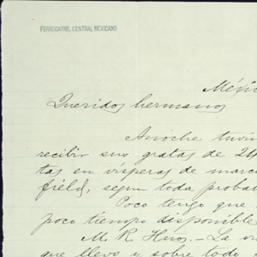 FERROCARRIL CENTRAL MEXICANO
Méxic
Queridos hermanos
Anoche tuvi
recibir sus gratas de 24
tas en vísperas de marc
field, segun toda probab
Poco tengo que
poco tiempo disponible
M. R. Hnos.- La vi
que llevo y sobre todo a